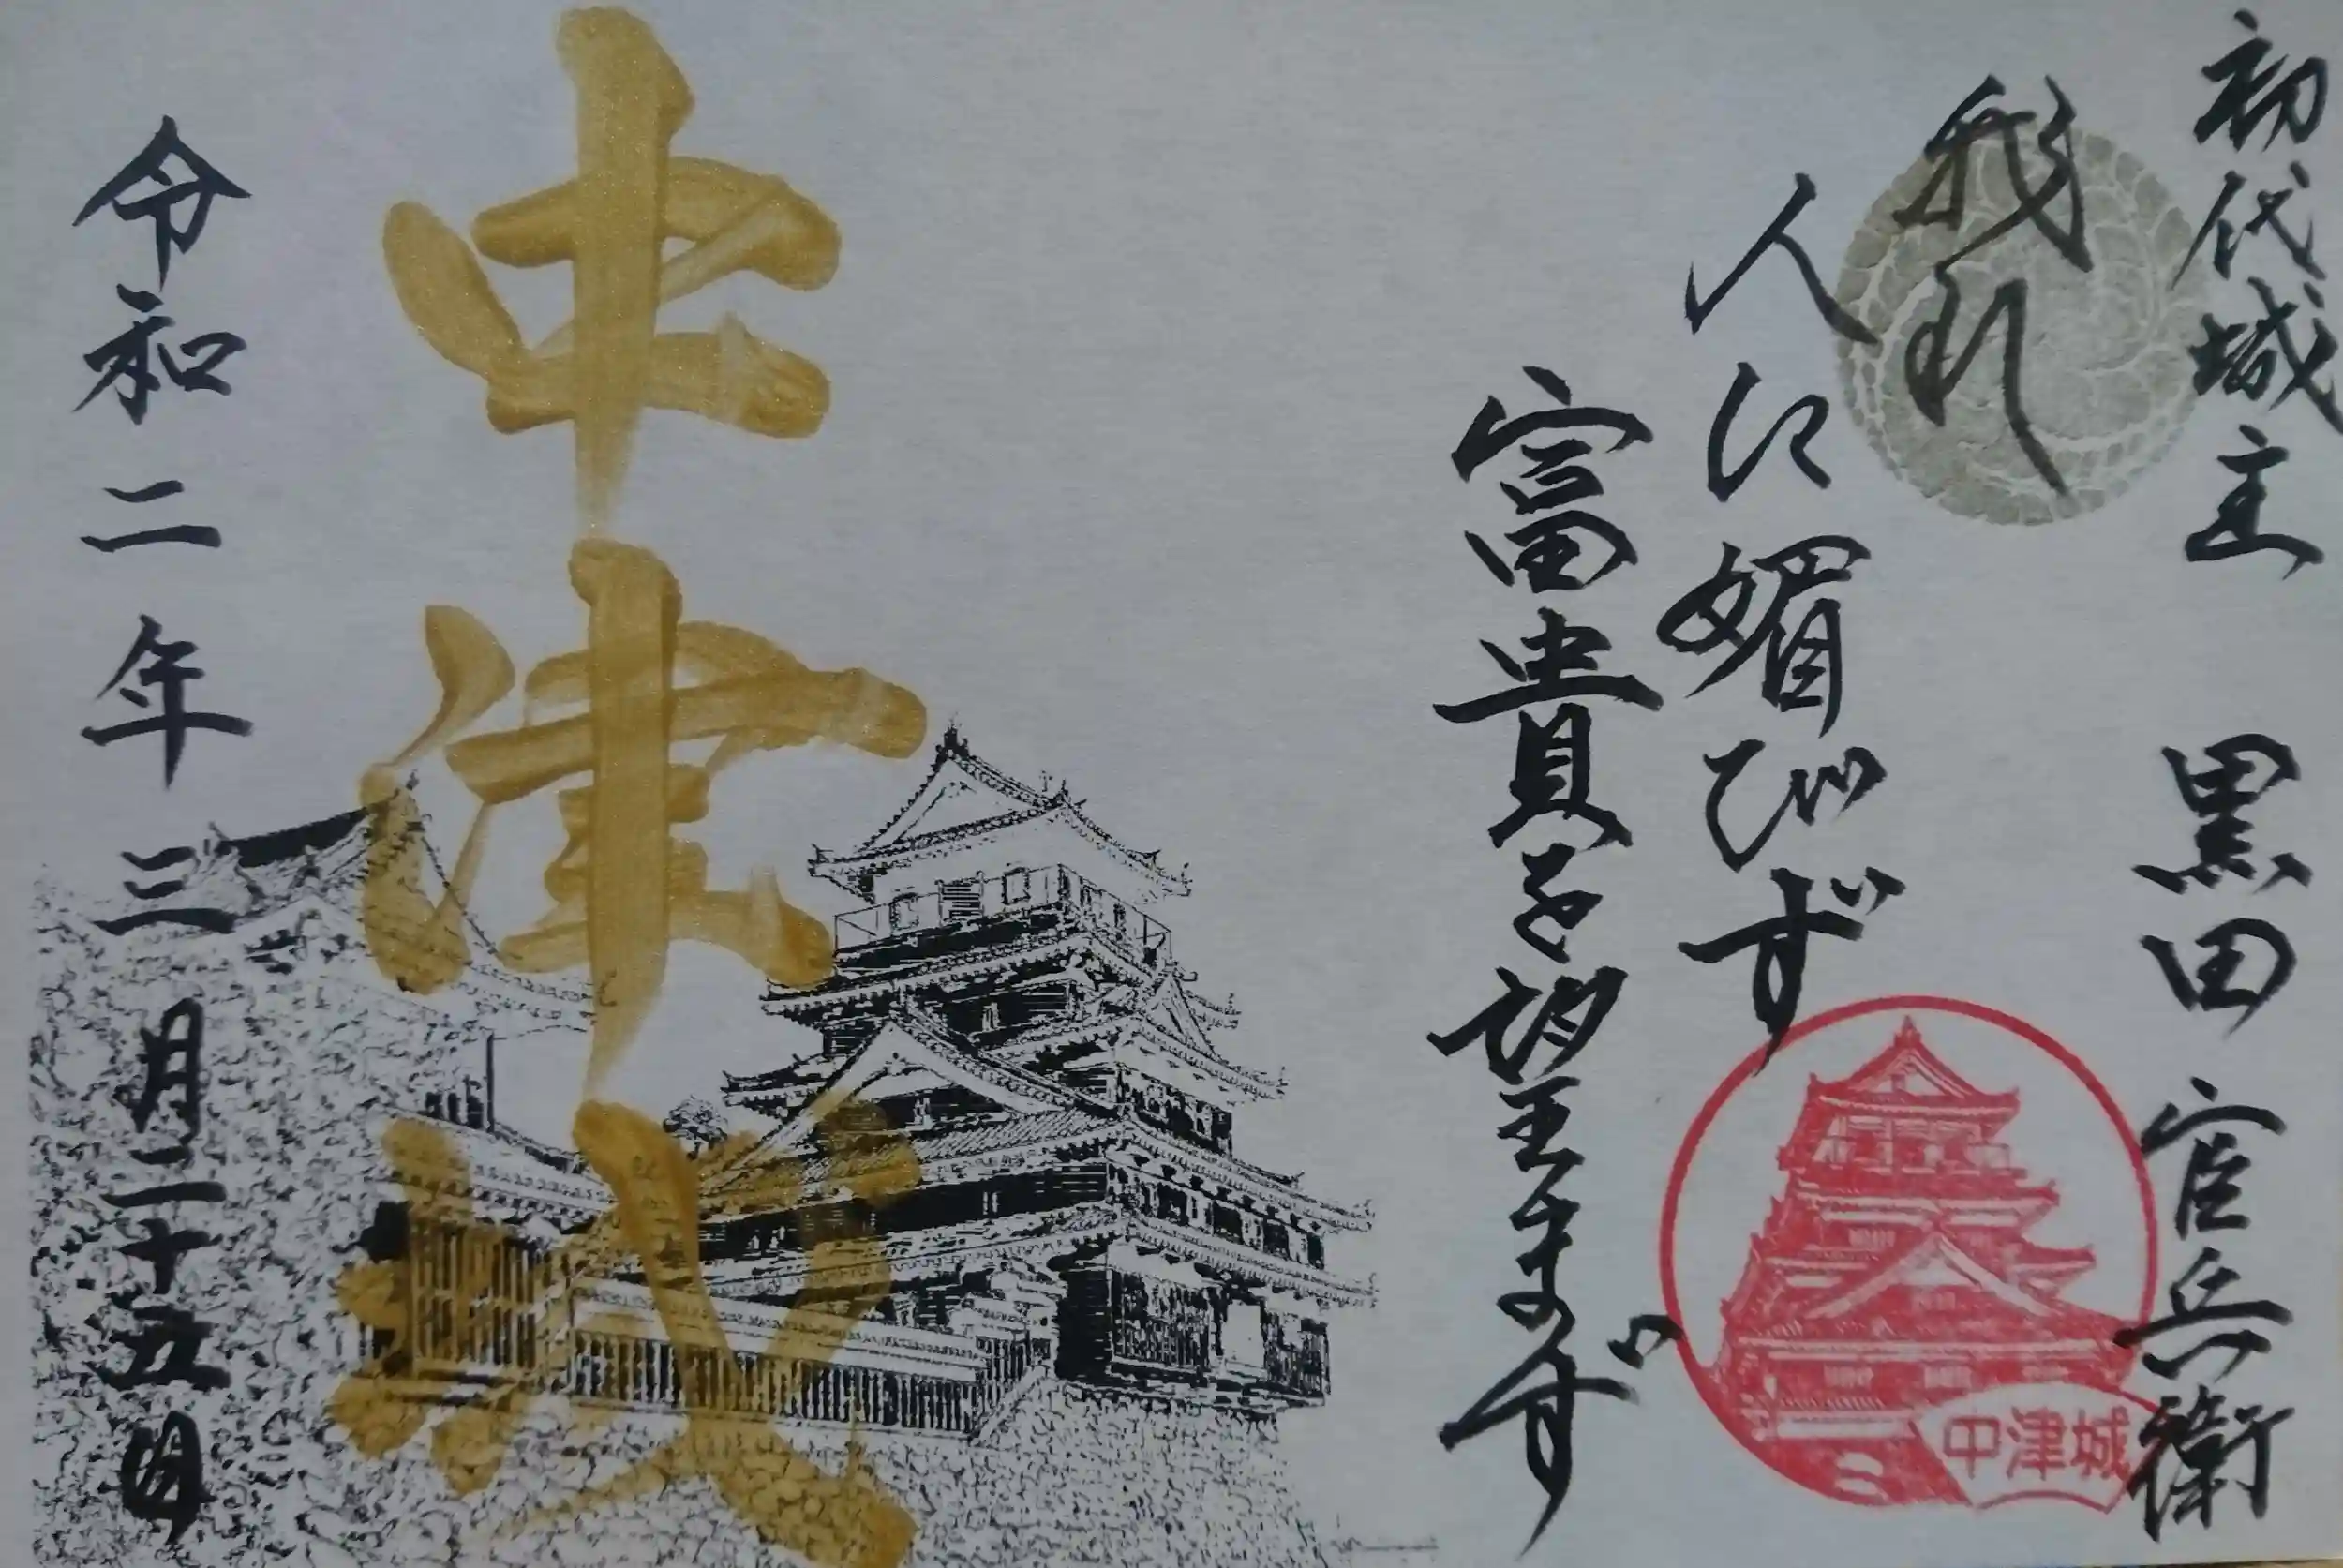 初代城主 黒田官兵衛
我れ
人に媚びず
富貴を望まず
中津城
中津城
令和二年三月二十五日